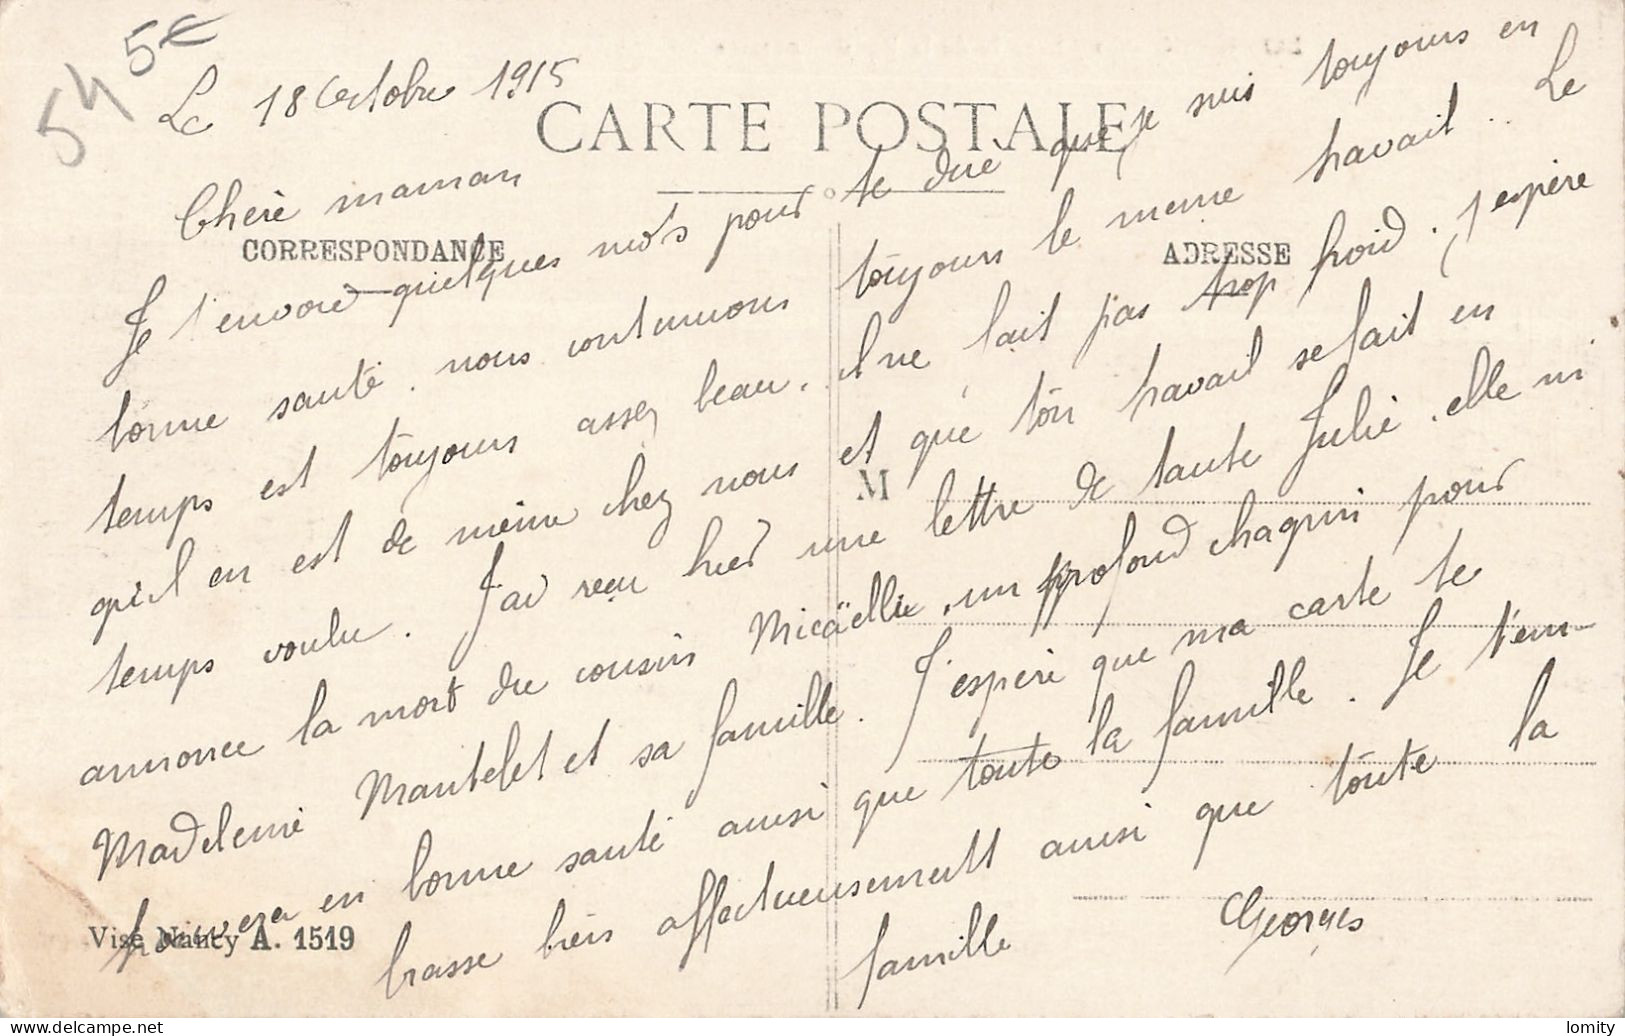 54 5€
Le 18 Octobre 1915
CARTE POSTALE
Chère maman
CORRESPONDANCE
ADRESSE
Je t'envoie quelques mots pour te dire que je suis toujours en
bonne santé. nous continuons toujours le meme travail. Le
temps est toujours assez beau. il ne fait pas trop froid. j'espère
qu'il en est de même chez nous et que ton travail se fait en
temps voulu. J'ai reçu hier une lettre de tante Julie. elle m'
annonce la mort du cousin Micaëlli. un profond chagrin pour
Madeleine Mantelet et sa famille. J'espère que ma carte te
trouvera en bonne santé ainsi que toute la famille. Je t'em-
brasse bien affectueusement ainsi que toute la
famille
Georges
M
Visé Nancy A. 1519
delcampe.net
lomity